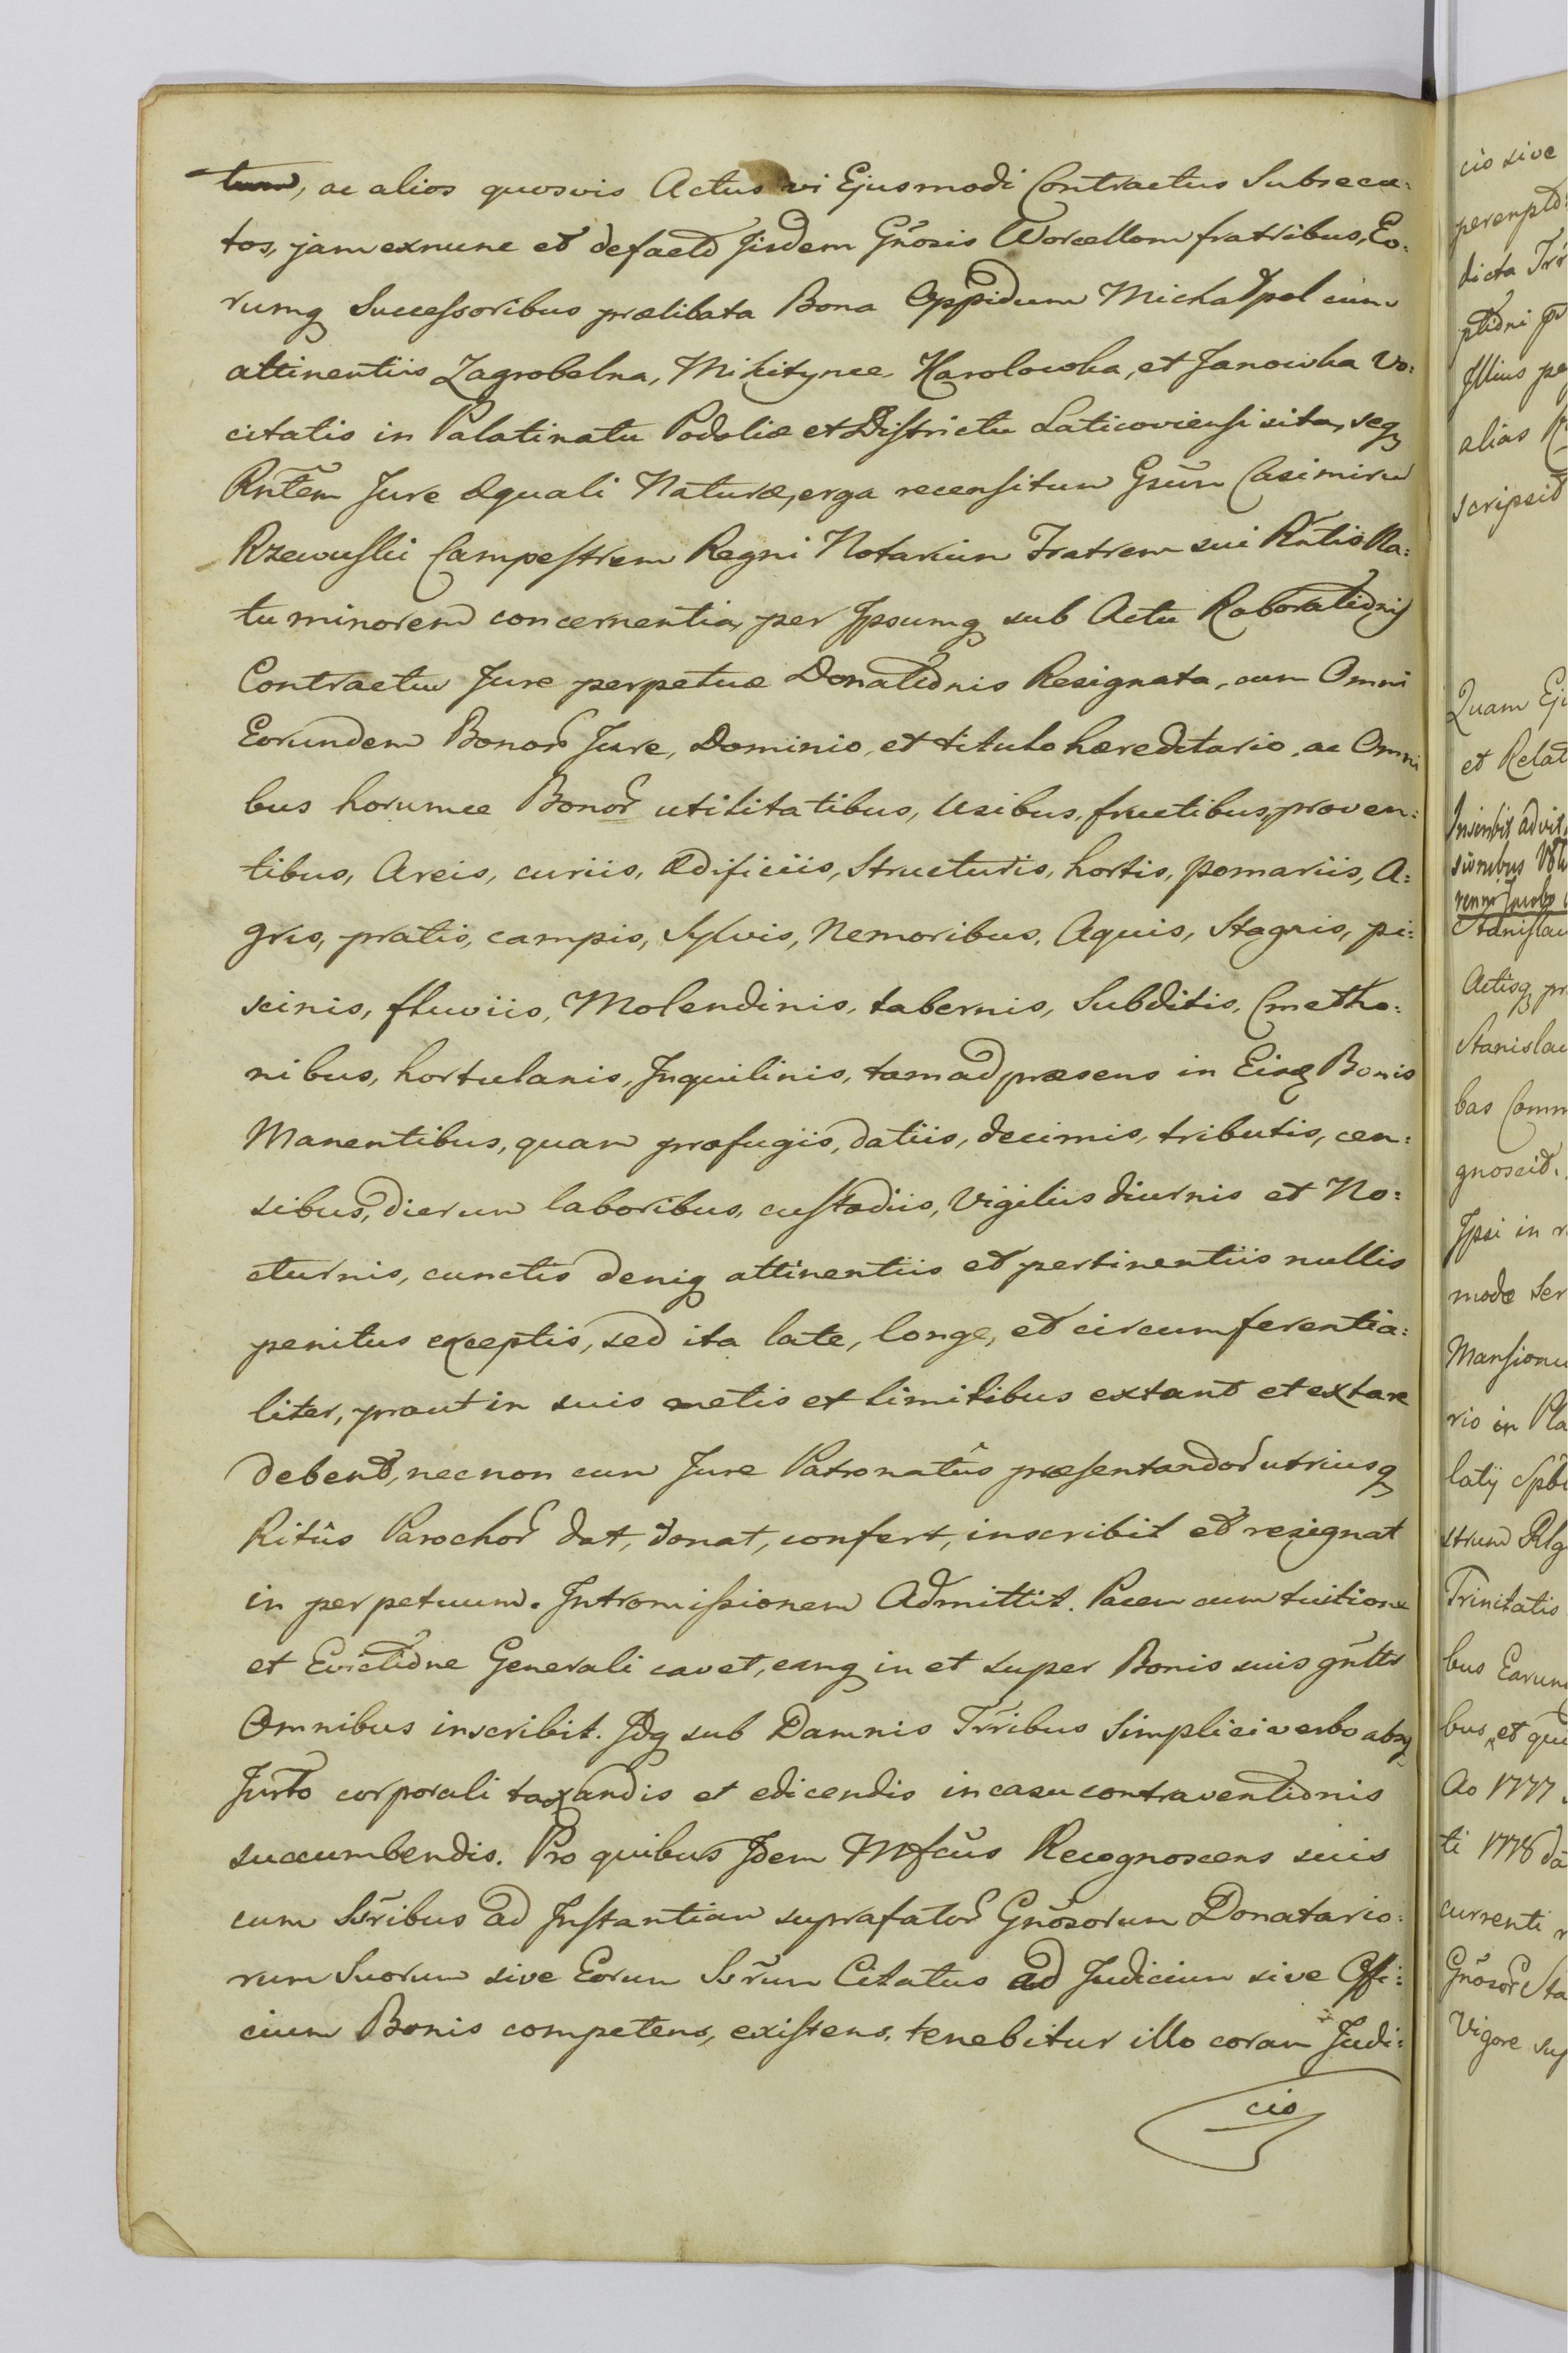 tum, ac alios quosvis Actus vi Ejusmodi Contractus Subsecu:
tos, jam exnunc et defacto Jisdem Gñosis Worcellom fratribus, Eo:
rumq Successoribus prælibata Bona Oppidum Michałpol cum
attinentiis Zagrobelna, Mikitynce Karolowka, et Janowka Vo:
citatis in Palatinatu Podoliæ et Districtu Laticoviensi sita, seq
Rñtem Jure æquali Naturæ, erga recensitum Gsũm Casimirum
Rzewuski Campestrem Regni Notarium Fratrem sui Rñtis Na:
tu minorem concernentia, per Ipsumq sub Actu Roborationis
Contractu Jure perpetuæ Donationis Resignata, cum Omni
Eorundem Bonor Jure, Dominio, et titulo hæreditario, ac Omni
bus horumce Bonor utilitatibus, usibus, fructibus, proven:
tibus, Areis, curiis, ædificiis, Structuris, hortis, pomariis, A:
gris, pratis, campis, Sylvis, Nemoribus, Aquis, Stagnis, pi:
scinis, fluviis, Molendinis, tabernis, Subditis, Cmetho:
nibus, hortulanis, Inquilinis, tam ad præsens in Eisq Bonis
Manentibus, quam profugiis, datiis, decimis, tributis, cen:
sibus, dierum laboribus, custodiis, Vigiliis diurnis et No:
cturnis, cunctis deniq attinentiis et pertinentiis nullis
penitus exceptis, sed ita late, longe, et circumferentia:
liter, prout in suis metis et limitibus extant et extare
debent, necnon cum Jure Patronatûs præsentandor utriusq
Ritûs Parochor dat, donat, confert, inscribit et resignat
in perpetuum. Intromissionem Admittit. Pacem cum tuitione
et Evictione Generali cavet, eamq in et super Bonis suis gñltr
Omnibus inscribit. Idq sub Damnis Trribus Simplici verbo absq
Jurto corporali taxandis et edicendis in casu contraventionis
succumbendis. Pro quibus Idem Mfcus Recognoscens suis
cum Ssribus ad Instantiam suprafator Gñosorum Donatario:
rum Suorum sive Eorum Ssrum Citatus ad Judicium sive Offi:
cium Bonis competens, existens, tenebitur illo coram Judi:
cio
cio sive
dicta
Illius
alias
scripsit
Quam
et Relat
Stanislau
Actisq
Stanislau
bas Comm
gnoscit.
Ipsi in
modo
Mansionu
rio in
latij
strum
Trinitatis
bus Earun
bus, et
Ao 1777
ti 1778
currenti
Gñosor
Vigore